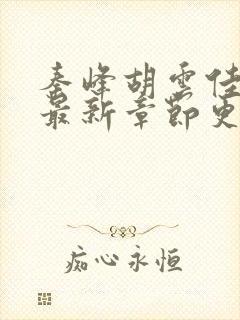 秦峰胡雲佳
最新章節更
痴心永恒